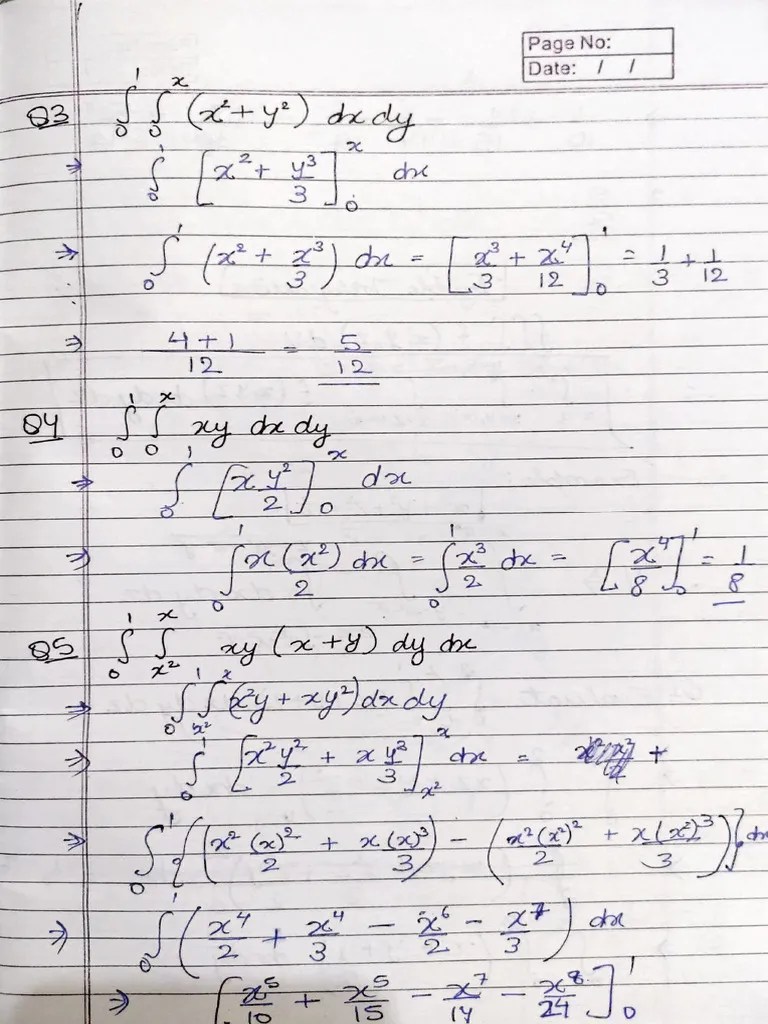 Page No:
Date: / /
Q3 ∫₀¹ ∫₀ˣ (x² + y²) dx dy
⇒ ∫₀¹ [x² + y³/3]₀ˣ dx
⇒ ∫₀¹ (x² + x³/3) dx = [x³/3 + x⁴/12]₀¹ = 1/3 + 1/12
⇒ (4+1)/12 = 5/12
Q4 ∫₀¹ ∫₀ˣ xy dx dy
⇒ ∫₀¹ [x y²/2]₀ˣ dx
⇒ ∫₀¹ x(x²)/2 dx = ∫₀¹ x³/2 dx = [x⁴/8]₀¹ = 1/8
Q5 ∫₀¹ ∫ₓ²ˣ xy (x+y) dy dx
⇒ ∫₀¹ ∫ₓ²ˣ (x²y + xy²) dx dy
⇒ ∫₀¹ [x² y²/2 + x y³/3]ₓ²ˣ dx = +
⇒ ∫₀¹ {(x²(x)²/2 + x(x)³/3) − (x²(x²)²/2 + x(x²)³/3)} dx
⇒ ∫₀¹ (x⁴/2 + x⁴/3 − x⁶/2 − x⁷/3) dx
⇒ [x⁵/10 + x⁵/15 − x⁷/14 − x⁸/24]₀¹